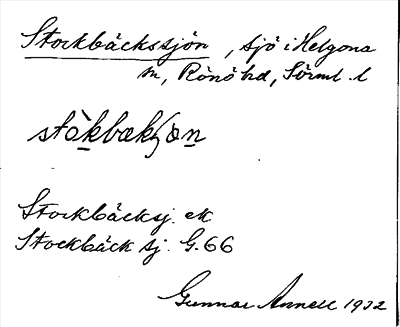 Stockbäckssjön, sjö i Helgona
sn, Rönö hd, Sörml. l
stò̱kbækʃøn̲
Stockbäcksj. ek
Stockbäck sj. G.66
Gunnar Annell 1932